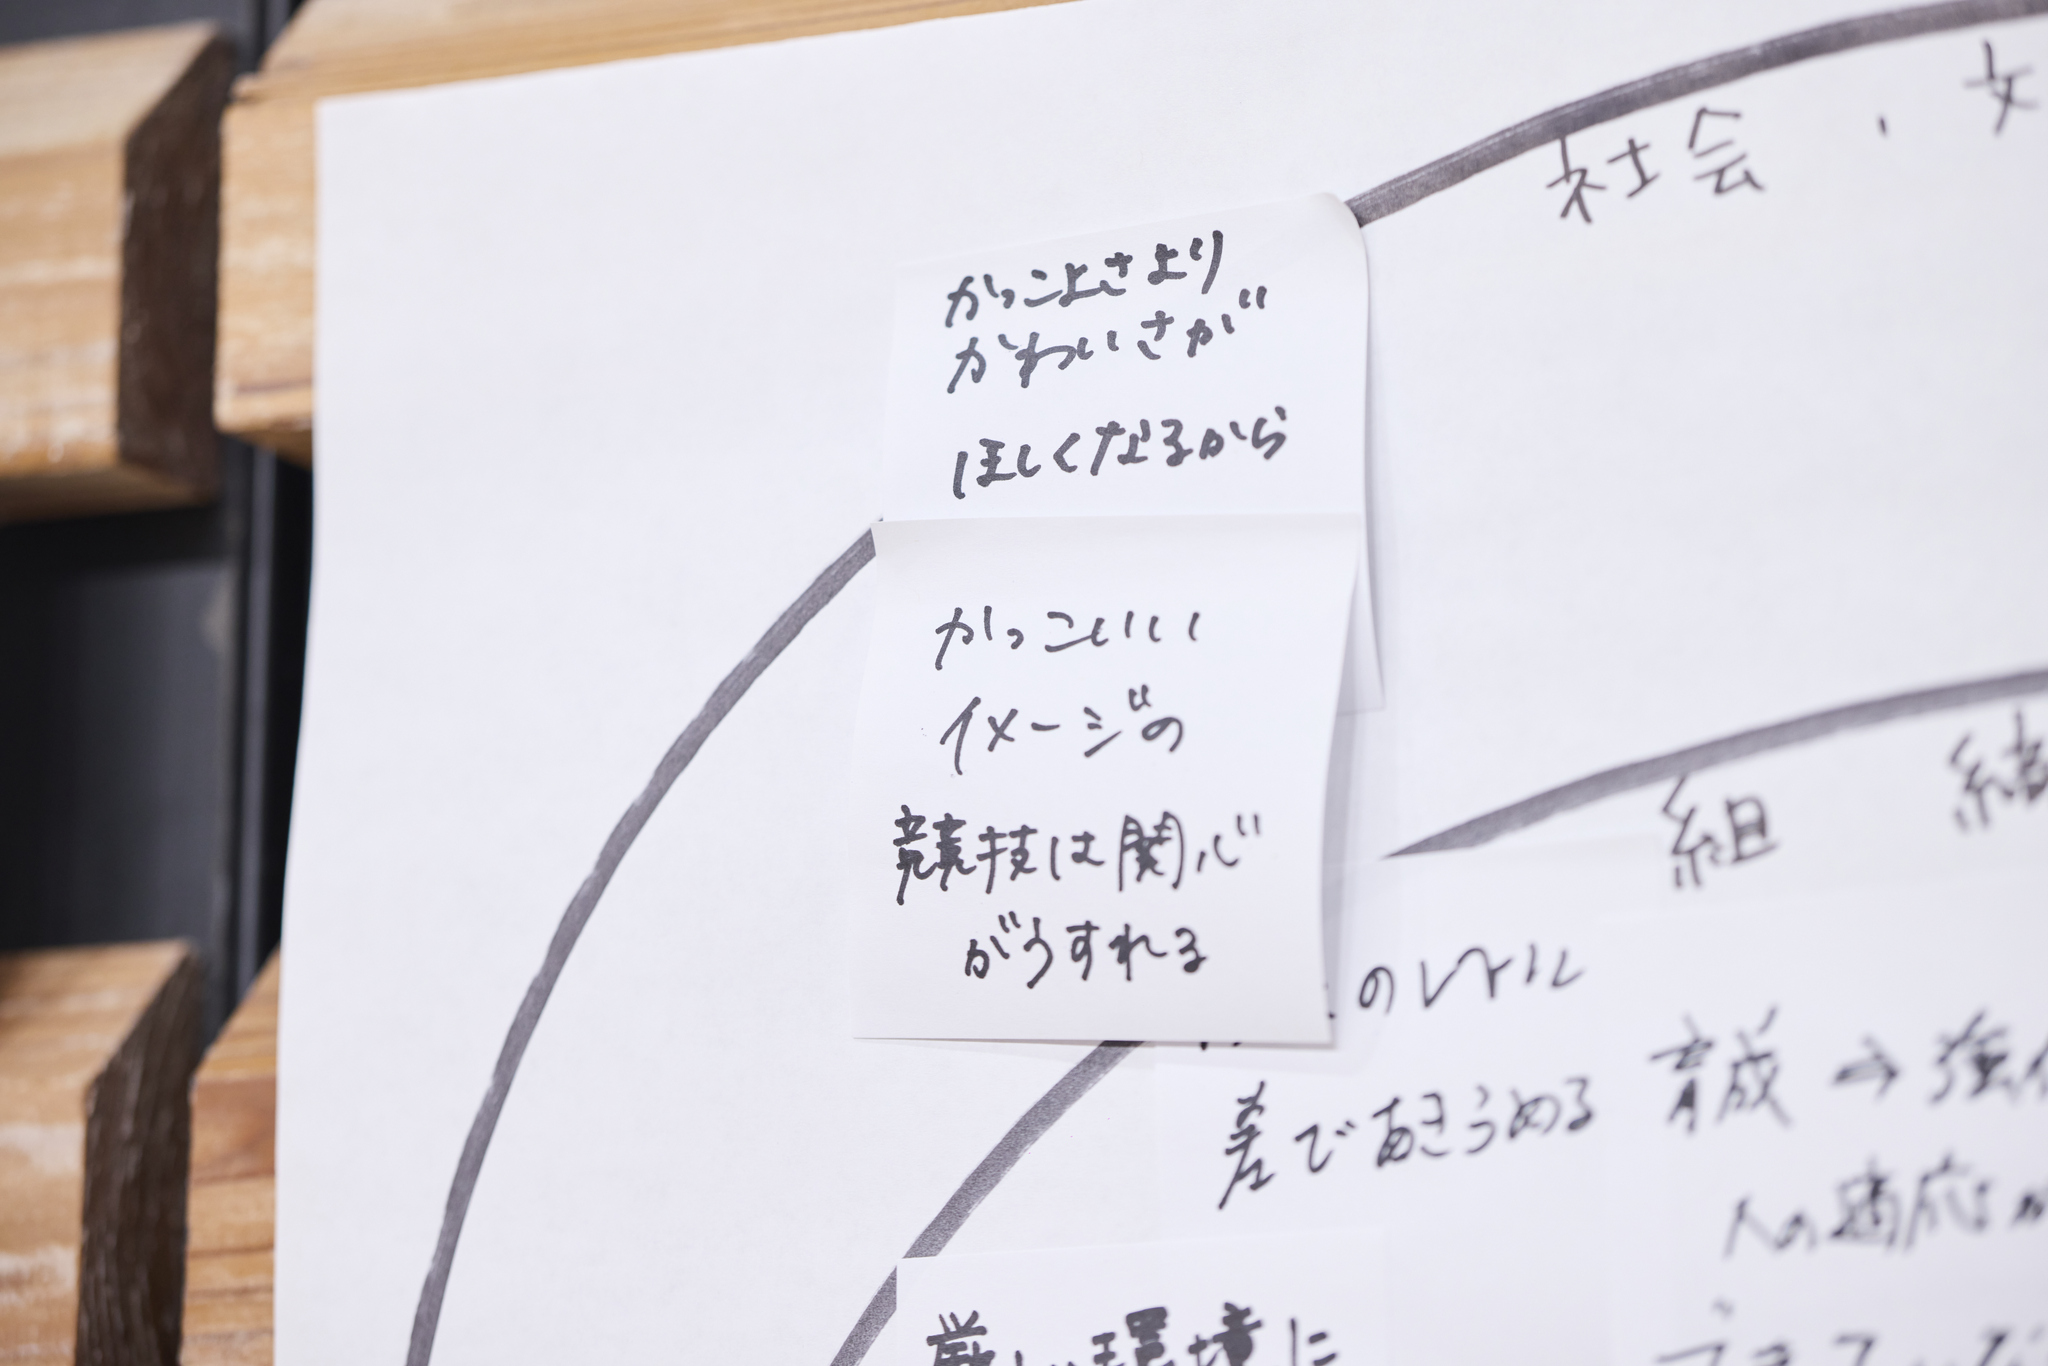 社会・文
かっこよさより
かわいさが
ほしくなるから
かっこいい
イメージの
競技は関心
がうすれる
組織
のレベル
差であきらめる
育成→強化
人の適応が
厳しい環境に